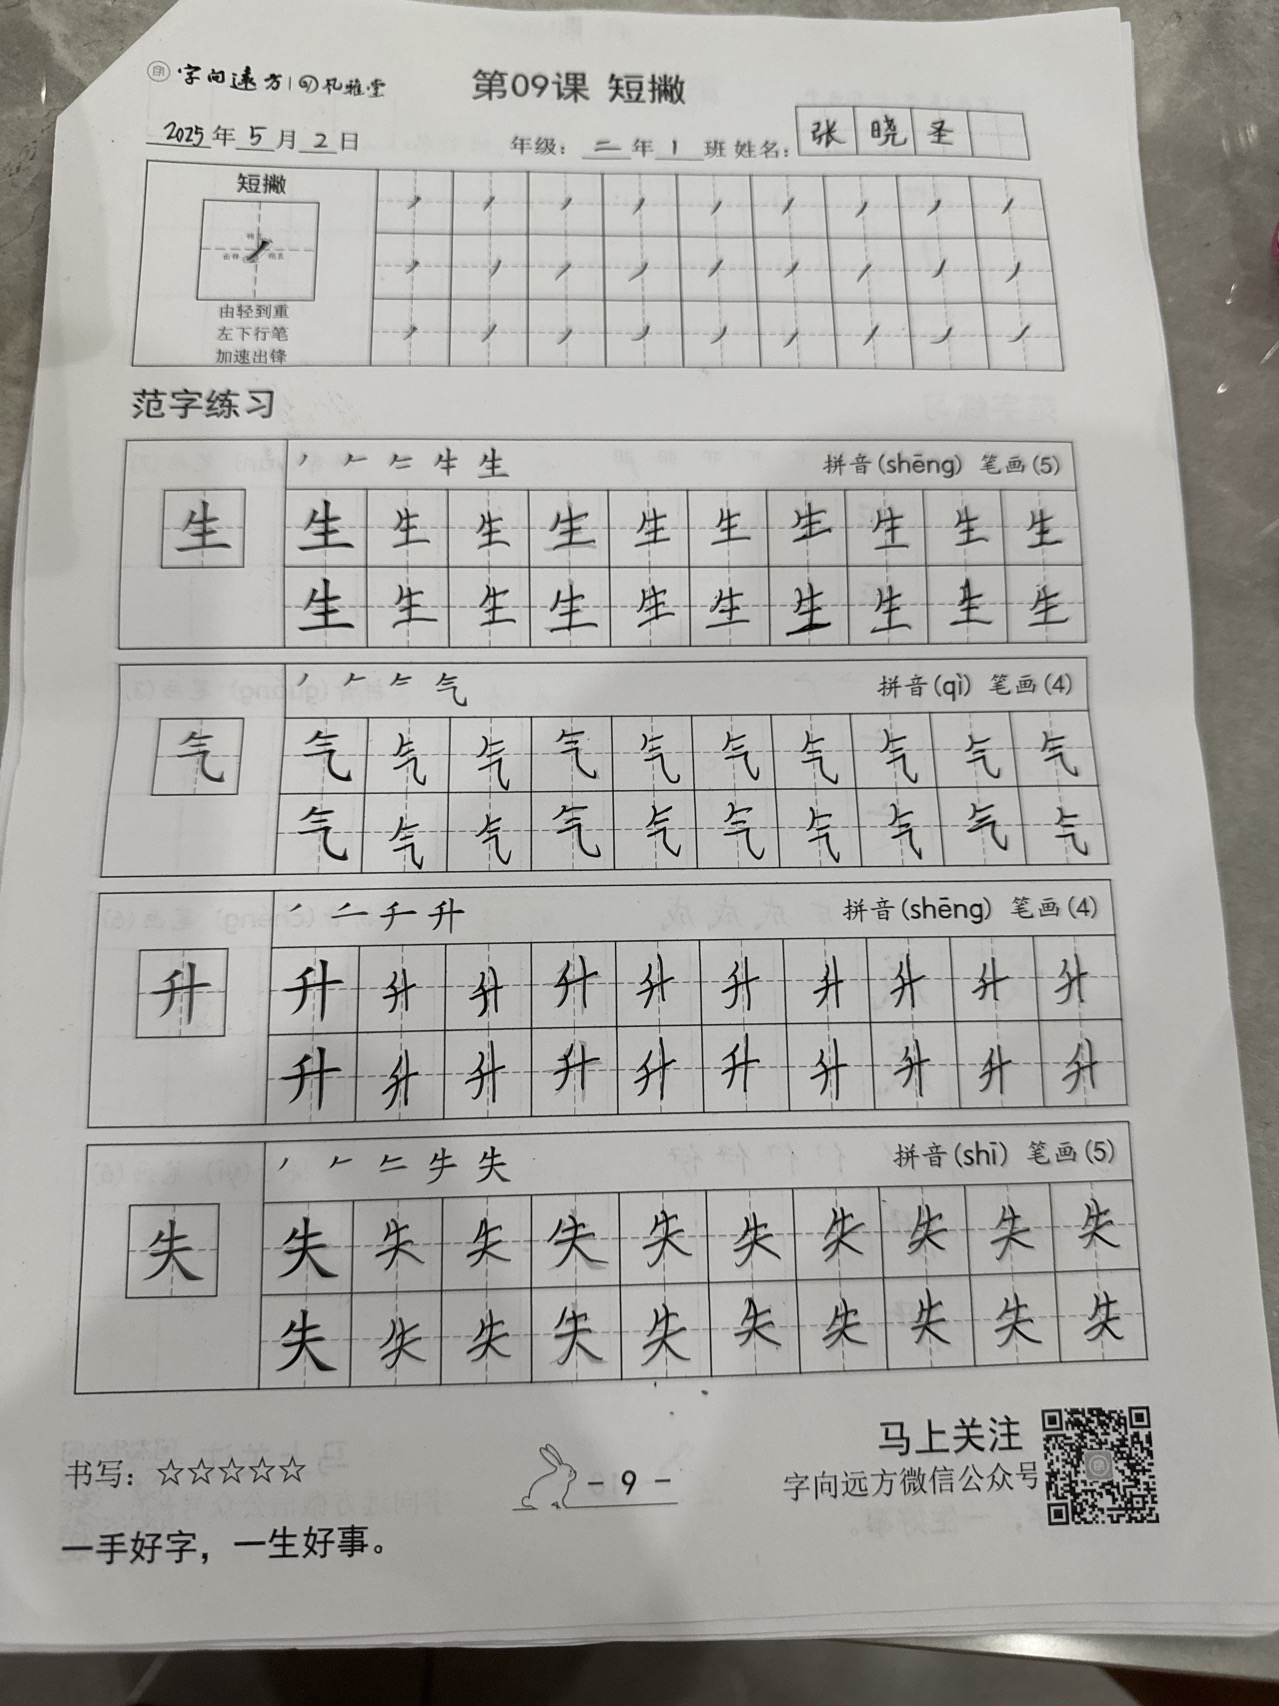 字向远方 | 风雅堂
第09课 短撇
2025年5月2日
年级：二年1班 姓名：张晓圣
短撇
由轻到重
左下行笔
加速出锋
范字练习
生 拼音(shēng) 笔画(5)
生 生 生 生 生 生 生 生 生 生 生
生 生 生 生 生 生 生 生 生 生
气 拼音(qì) 笔画(4)
气 气 气 气 气 气 气 气 气 气 气
气 气 气 气 气 气 气 气 气 气
升 拼音(shēng) 笔画(4)
升 升 升 升 升 升 升 升 升 升 升
升 升 升 升 升 升 升 升 升 升
失 拼音(shī) 笔画(5)
失 失 失 失 失 失 失 失 失 失 失
失 失 失 失 失 失 失 失 失 失
书写：☆☆☆☆☆
- 9 -
马上关注
字向远方微信公众号
一手好字，一生好事。